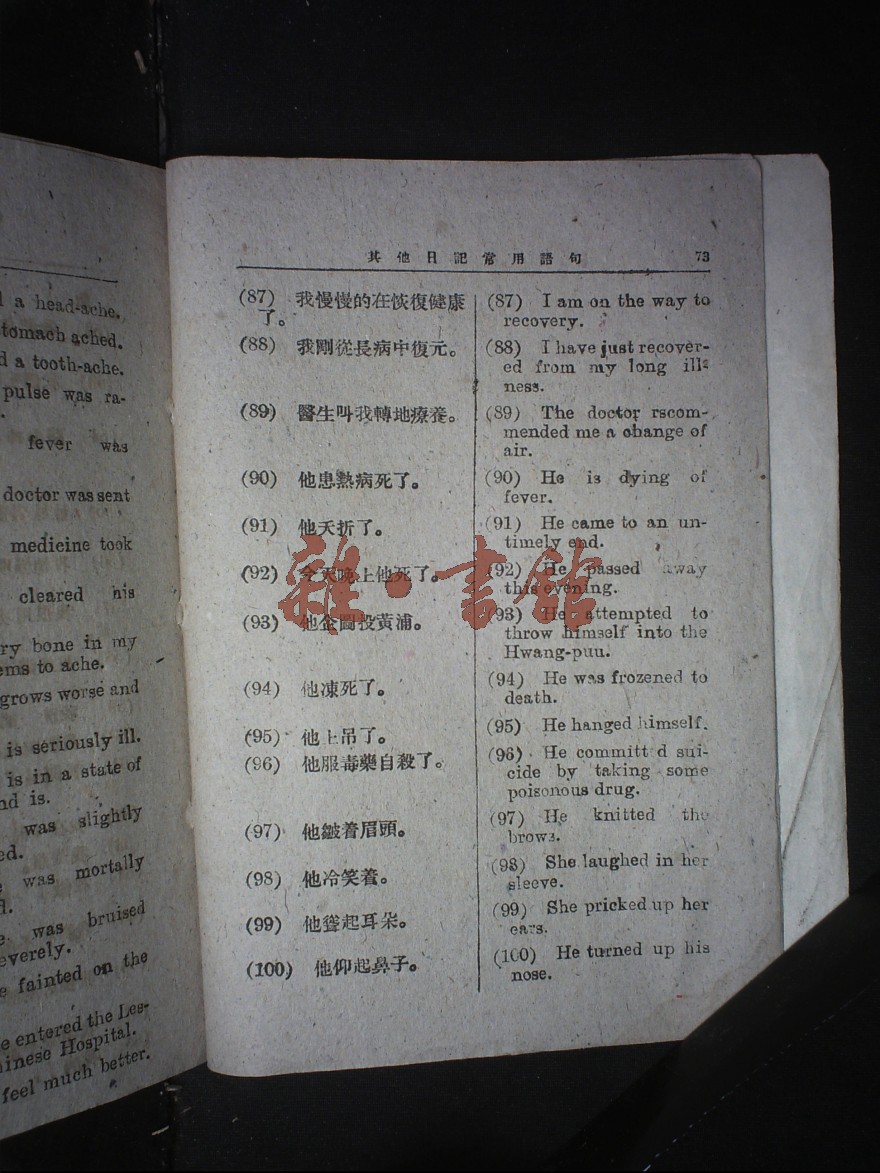 a head-ache.
stomach ached.
a tooth-ache.
pulse was ra-
fever was
doctor was sent
medicine took
cleared his
bone in my
to ache.
grows worse and
is seriously ill.
is in a state of
is.
was slightly
was mortally
was bruised
fainted on the
entered the Les-
Hospital.
feel much better.
其他日記常用語句 73
(87) 我慢慢的在恢復健康
了。
(88) 我剛從長病中復元。
(89) 醫生叫我轉地療養。
(90) 他患熱病死了。
(91) 他夭折了。
(92) 今天晚上他死了。
(93) 他企圖投黃浦。
(94) 他凍死了。
(95) 他上吊了。
(96) 他服毒藥自殺了。
(97) 他皺着眉頭。
(98) 他冷笑着。
(99) 他聳起耳朵。
(100) 他仰起鼻子。
(87) I am on the way to
recovery.
(88) I have just recover-
ed from my long ill-
ness.
(89) The doctor rscom-
mended me a change of
air.
(90) He is dying of
fever.
(91) He came to an un-
timely end.
(92) He passed away
this evening.
(93) He attempted to
throw himself into the
Hwang-puu.
(94) He was frozened to
death.
(95) He hanged himself.
(96) He committ d sui-
cide by taking some
poisonous drug.
(97) He knitted the
brows.
(98) She laughed in her
sleeve.
(99) She pricked up her
ears.
(100) He turned up his
nose.
雜·書館